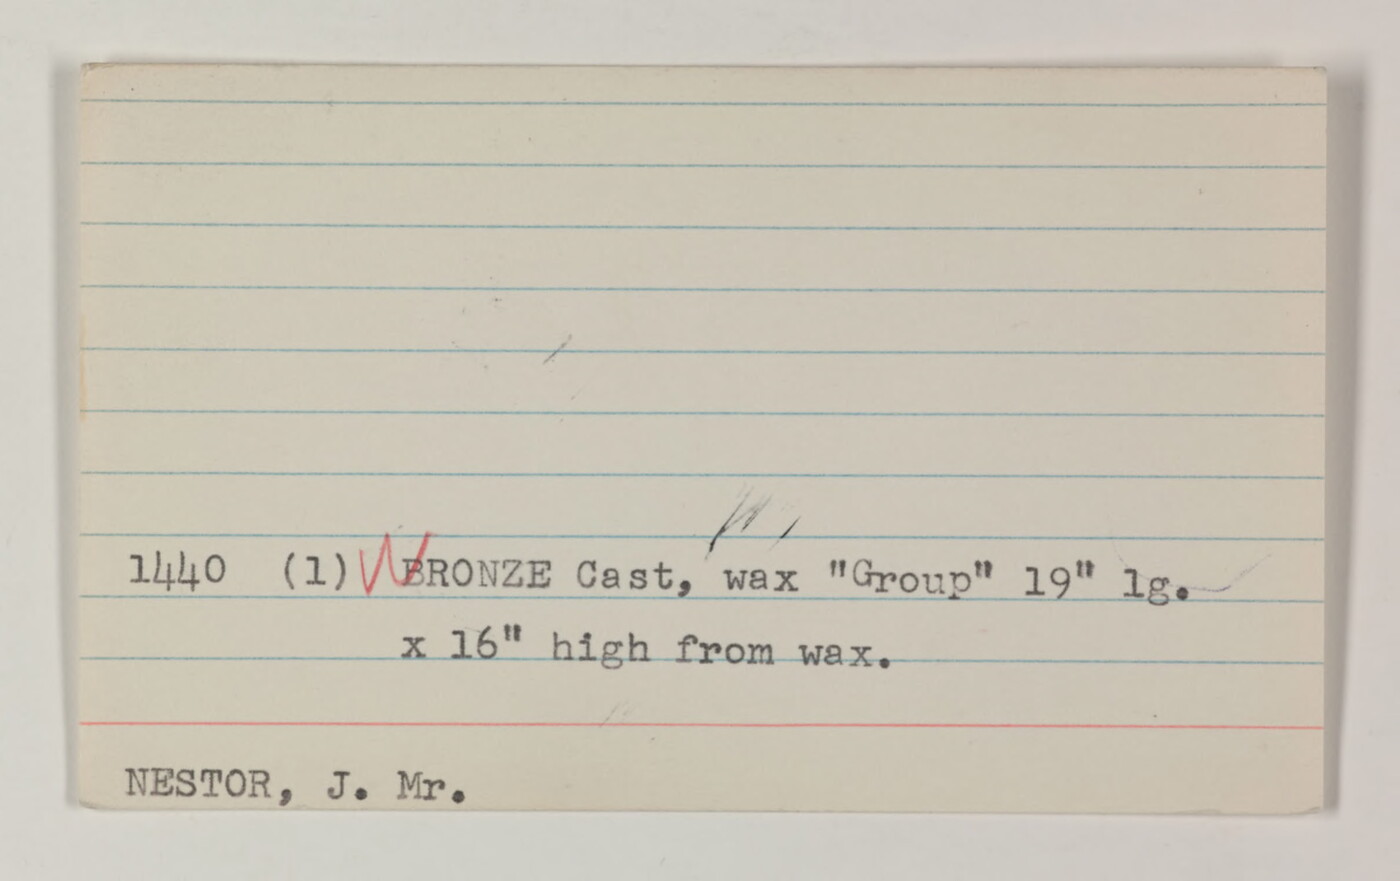 1440 (1) BRONZE Cast, wax "Group" 19" lg.
x 16" high from wax.
NESTOR, J. Mr.